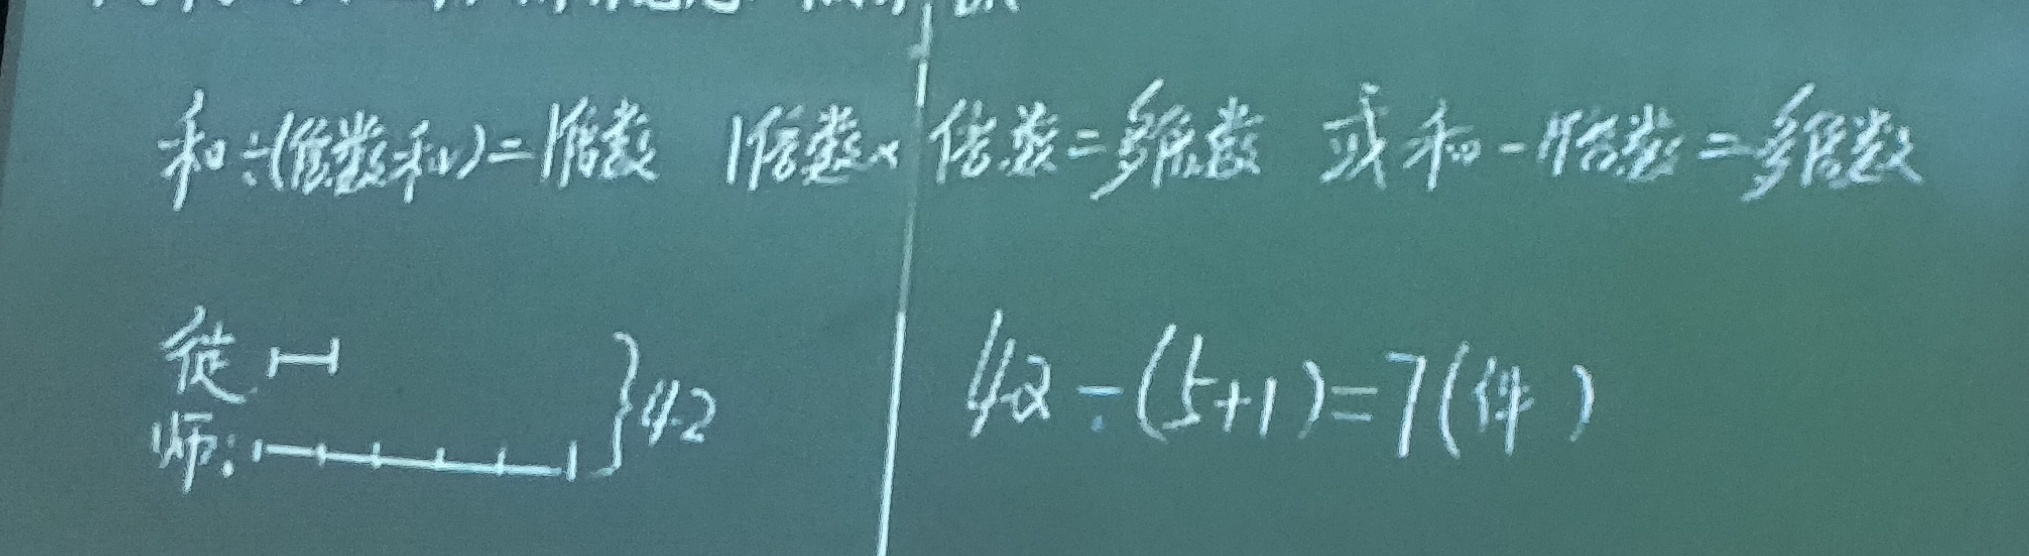 和÷(倍数和)=1倍数 1倍数×倍数=多倍数 或和-1倍数=多倍数
徒
师:
}42
42÷(5+1)=7(件)